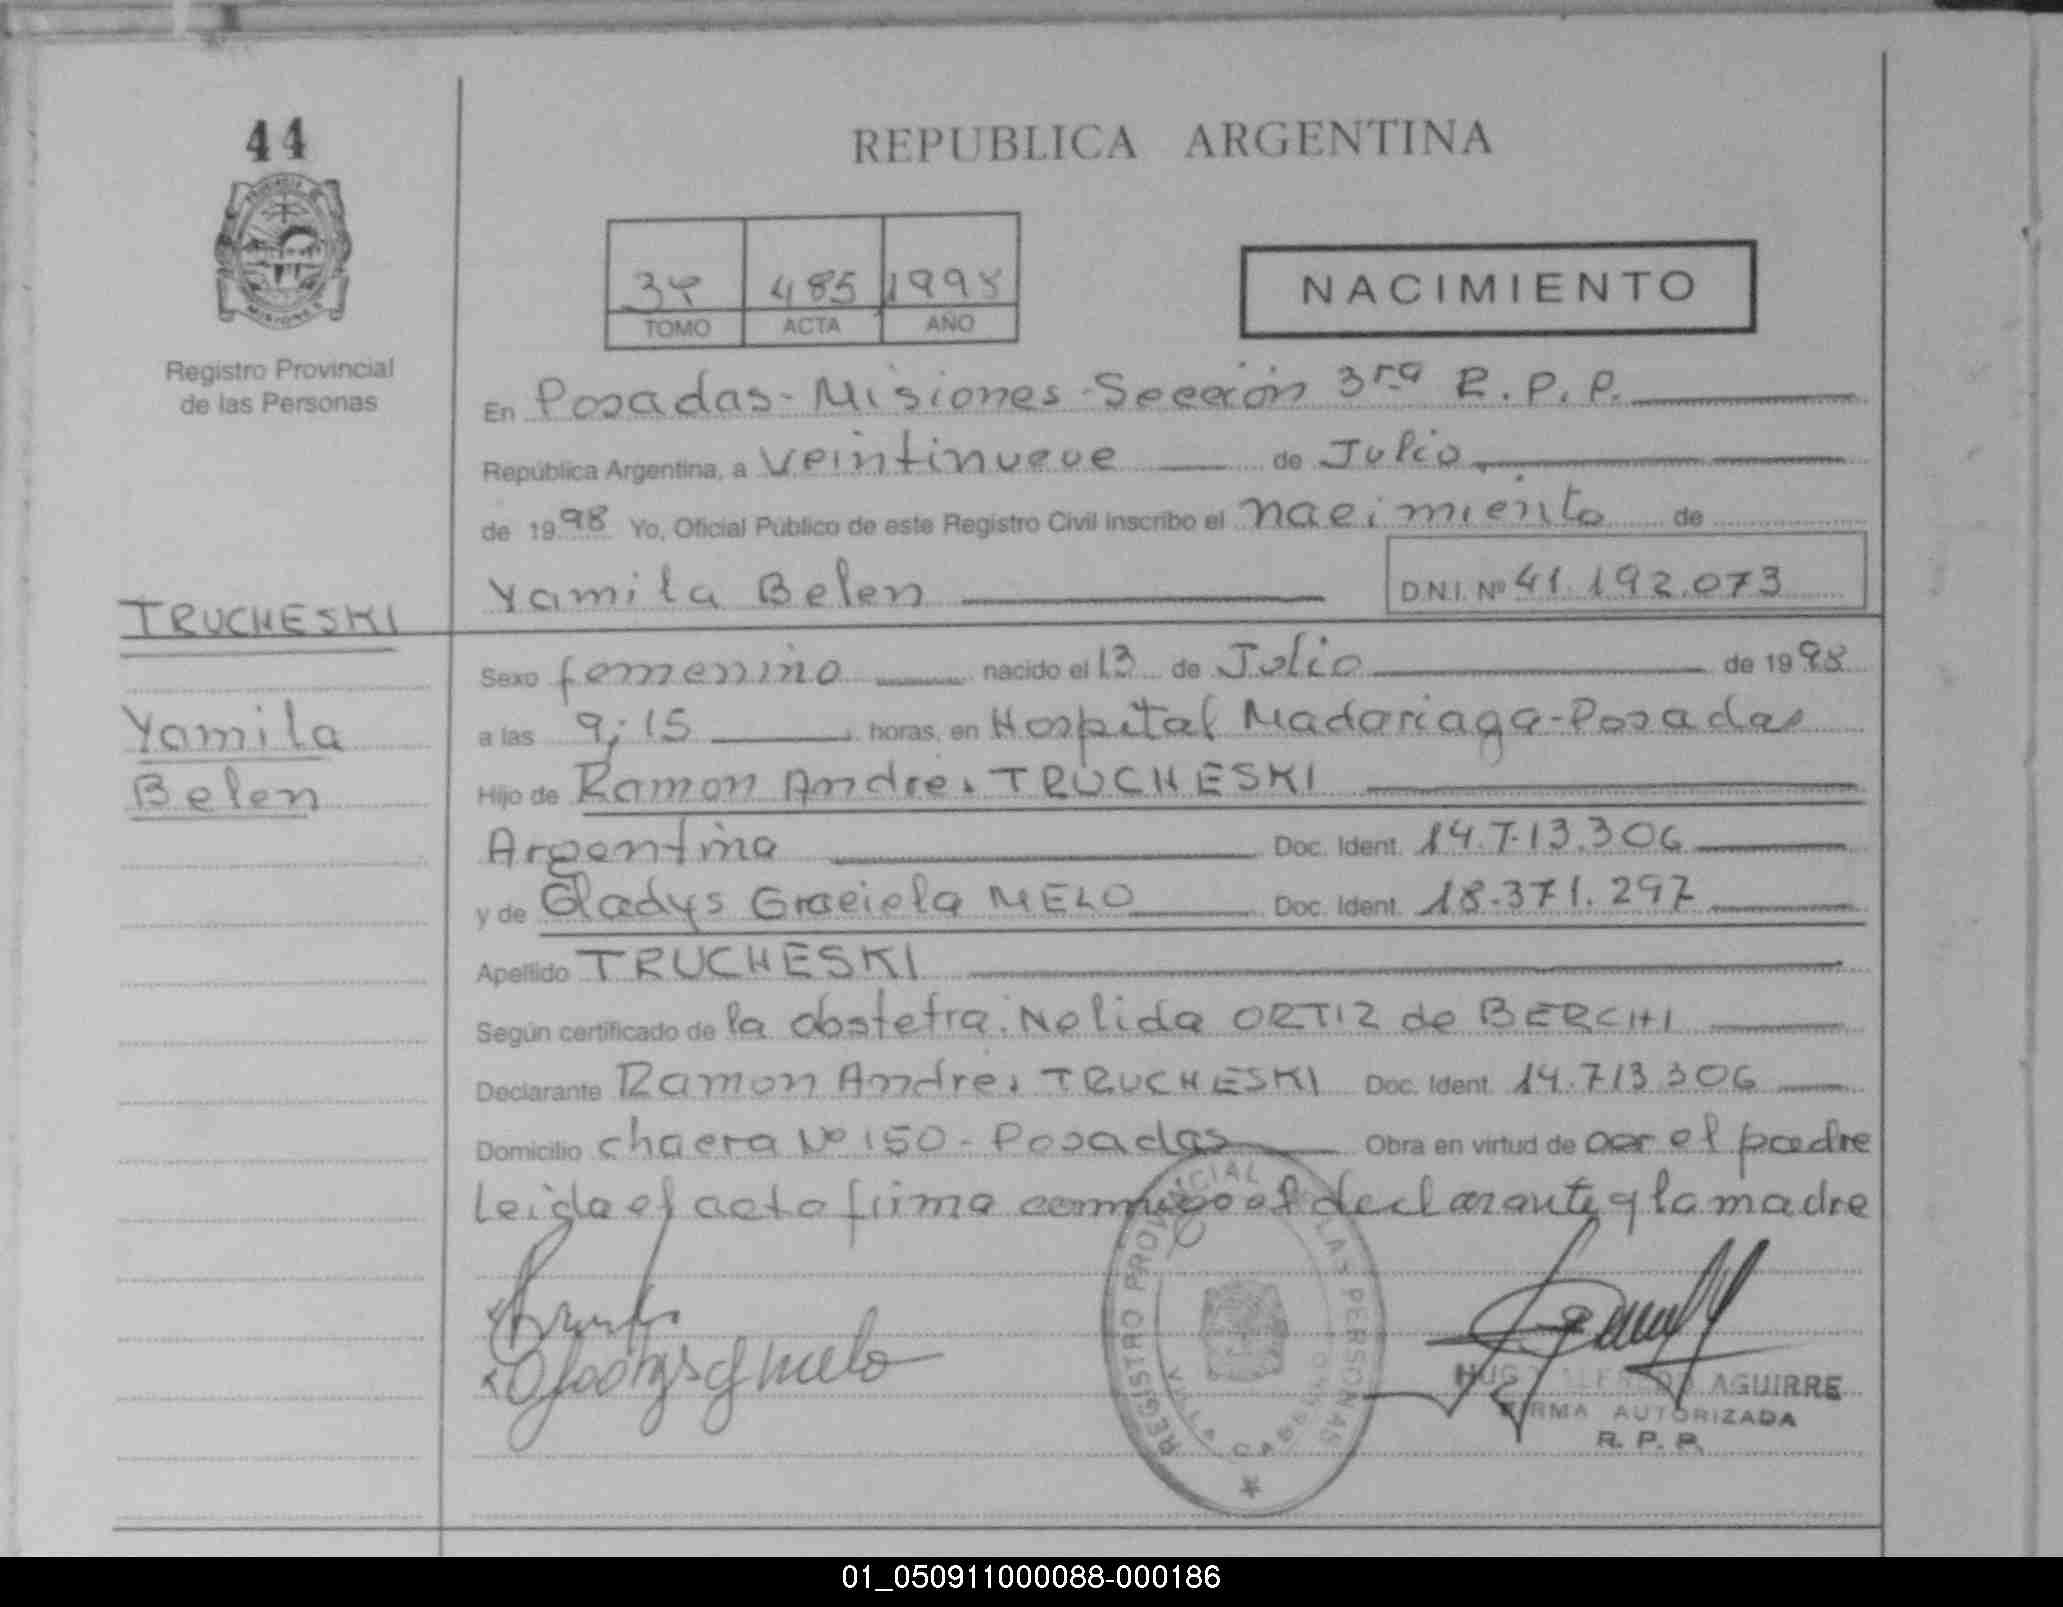 44
REPUBLICA ARGENTINA
485 1998
TOMO ACTA AÑO
NACIMIENTO
Registro Provincial
de las Personas
En Posadas-Misiones-Sección 3ra R.P.P.
República Argentina, a veintinueve de Julio
de 1998 Yo, Oficial Público de este Registro Civil inscribo el nacimiento de
Yamila Belen D.N.I. Nº 41.192.073
TRUCHESKI
Sexo femenino nacido el 13 de Julio de 1998
Yamila
a las 9;15 horas, en Hospital Madariaga-Posadas
Belen
Hijo de Ramon Andres TRUCHESKI
Argentina Doc. Ident. 14.713.306
y de Gladys Graciela MELO Doc. Ident. 18.371.297
Apellido TRUCHESKI
Según certificado de la obstetra. Nelida ORTIZ de BERCHI
Declarante Ramon Andres TRUCHESKI Doc. Ident. 14.713.306
Domicilio chacra Nº 150-Posadas Obra en virtud de ser el padre
Leida el acta firma conmigo el declarante y la madre
REGISTRO PROVINCIAL DE LAS PERSONAS
VILLA CABELLO
HUGO ALFREDO AGUIRRE
FIRMA AUTORIZADA
R. P. P.
01_050911000088-000186